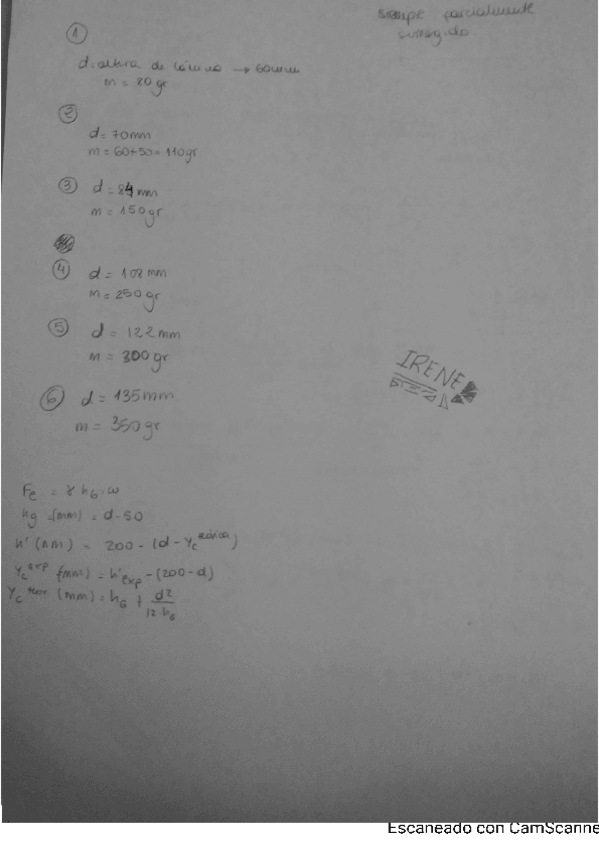 siempre parcialmente
sumergido
①
d = altura de lámina → 60mm
m = 80 gr
②
d = 70mm
m = 60+50 = 110gr
③ d = 84 mm
m = 150gr
④ d = 102 mm
m = 250gr
⑤ d = 122mm
m = 300gr
⑥ d = 135mm
m = 350gr
IRENE
Fe = γ hG · ω
hg (mm) = d - 50
h' (mm) = 200 - (d - Yc teórica)
Yc exp (mm) = h'exp - (200-d)
Yc teor (mm) = hG + d2/12·hG
Escaneado con CamScanne